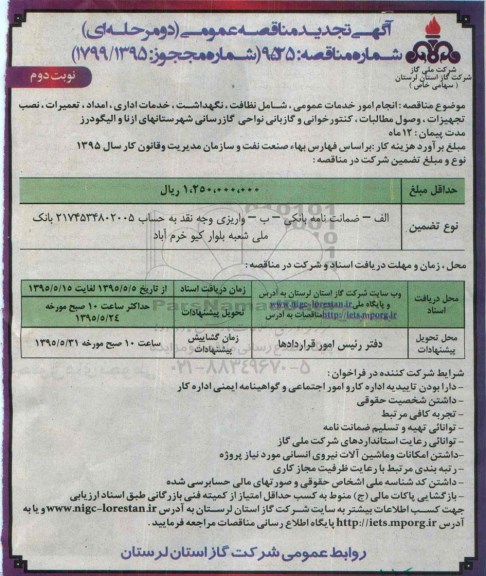 آگهی تجدید مناقصه عمومی (دو مرحله‌ای)
شماره مناقصه: ۹۵۲۵ (شماره مجوز: ۱۷۹۹/۱۳۹۵)
شرکت ملی گاز
شرکت گاز استان لرستان
( سهامی خاص )
نوبت دوم
موضوع مناقصه : انجام امور خدمات عمومی ، شامل نظافت ، نگهداشت ، خدمات اداری ، امداد ، تعمیرات ، نصب
تجهیزات ، وصول مطالبات ، کنتورخوانی و گازبانی نواحی گازرسانی شهرستانهای ازنا و الیگودرز
مدت پیمان : ۱۲ ماه
مبلغ برآورد هزینه کار :براساس فهارس بهاء صنعت نفت و سازمان مدیریت وقانون کار سال ۱۳۹۵
نوع و مبلغ تضمین شرکت در مناقصه :
حداقل مبلغ
۱،۲۵۰،۰۰۰،۰۰۰ ریال
نوع تضمین
الف – ضمانت نامه بانکی – ب – واریزی وجه نقد به حساب ۲۱۷۴۵۳۴۸۰۲۰۰۵ بانک
ملی شعبه بلوار کیو خرم آباد
محل ، زمان و مهلت دریافت اسناد و شرکت در مناقصه :
محل دریافت اسناد
وب سایت شرکت گاز استان لرستان به آدرس
www.nigc-lorestan.ir و پایگاه ملی
مناقصات به آدرس http://iets.mporg.ir
زمان دریافت اسناد
از تاریخ ۱۳۹۵/۵/۵ لغایت ۱۳۹۵/۵/۱۵
تحویل پیشنهادات
حداکثر ساعت ۱۰ صبح مورخه
۱۳۹۵/۵/۲۴
محل تحویل پیشنهادات
دفتر رئیس امور قراردادها
زمان گشایش پیشنهادات
ساعت ۱۰ صبح مورخه ۱۳۹۵/۵/۳۱
۰۲۱-۸۸۳۴۹۶۷۰-۵
شرایط شرکت کننده در فراخوان :
– دارا بودن تاییدیه اداره کار و امور اجتماعی و گواهینامه ایمنی اداره کار
– داشتن شخصیت حقوقی
– تجربه کافی مرتبط
– توانائی تهیه و تسلیم ضمانت نامه
– توانائی رعایت استانداردهای شرکت ملی گاز
–داشتن امکانات وماشین آلات نیروی انسانی مورد نیاز پروژه
– رتبه بندی مرتبط با رعایت ظرفیت مجاز کاری
– داشتن کد شناسه ملی اشخاص حقوقی و صورتهای مالی حسابرسی شده
– بازگشایی پاکات مالی (ج) منوط به کسب حداقل امتیاز از کمیته فنی بازرگانی طبق اسناد ارزیابی
جهت کسب اطلاعات بیشتر به سایت شرکت گاز استان لرستان به آدرس www.nigc-lorestan.ir و یا به
آدرس http://iets.mporg.ir پایگاه اطلاع رسانی مناقصات مراجعه فرمایید .
روابط عمومی شرکت گاز استان لرستان